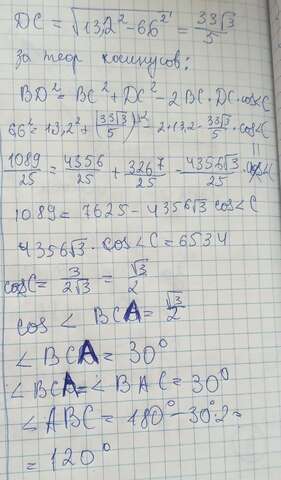 DC = √13,2² - 6,6² = 33√3/5
за теор косинусов:
BD² = BC² + DC² - 2BC · DC · cos<C
6,6² = 13,2² + (33√3/5)² - 2 · 13,2 · 33√3/5 · cos<C
1089/25 = 4356/25 + 3267/25 - 4356√3/25 · cos<C
1089 = 7625 - 4356√3 cos<C
4356√3 · cos<C = 6534
cosC = 3/2√3 = √3/2
cos < BCA = √3/2
< BCA = 30°
< BCA = < BAC = 30°
< ABC = 180° - 30° · 2 =
= 120°